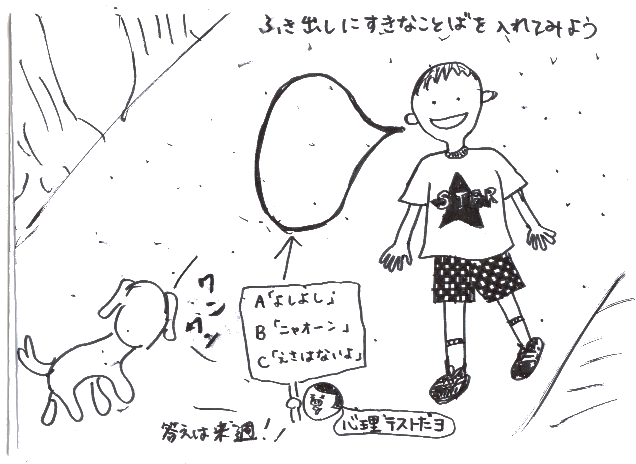 ふき出しにすきなことばを入れてみよう
STAR
ワンワン
A「よしよし」
B「ニャオーン」
C「えさはないよ」
心理テストだヨ
答えは来週!